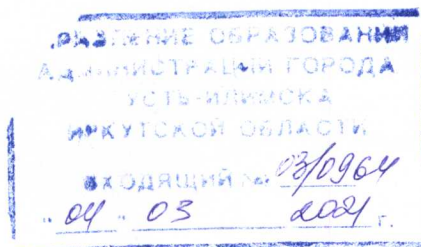 УПРАВЛЕНИЕ ОБРАЗОВАНИЯ
АДМИНИСТРАЦИИ ГОРОДА
УСТЬ-ИЛИМСКА
ИРКУТСКОЙ ОБЛАСТИ
ВХОДЯЩИЙ № 03/0964
"04" 03 2021 г.